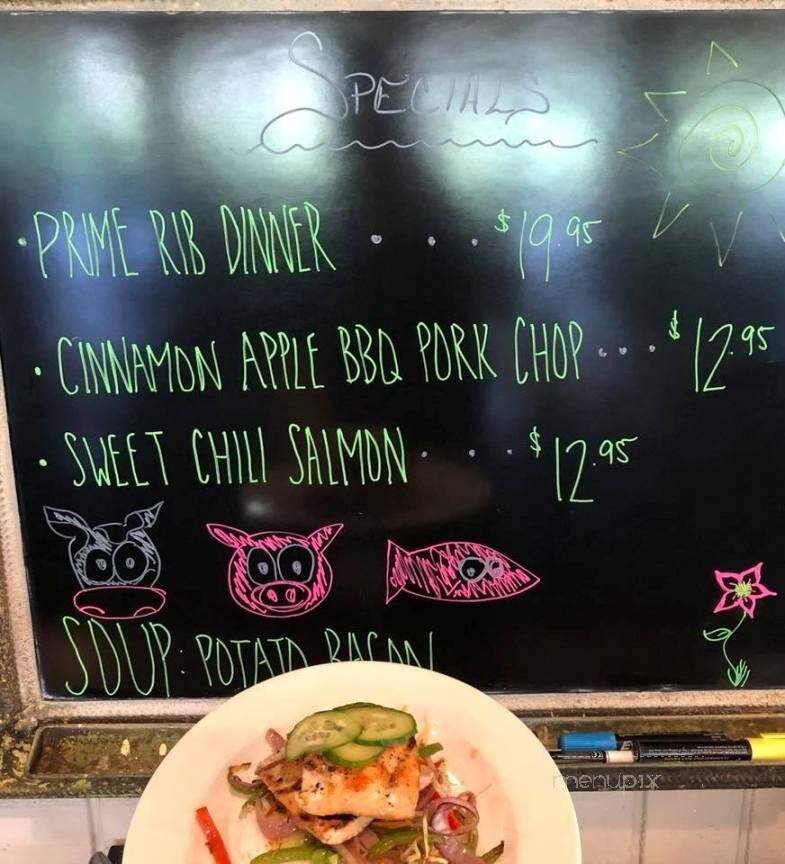 SPECIALS
· PRIME RIB DINNER . . . $19.95
· CINNAMON APPLE BBQ PORK CHOP . . . $12.95
· SWEET CHILI SALMON . . . $12.95
SOUP: POTATO BACON
menupix